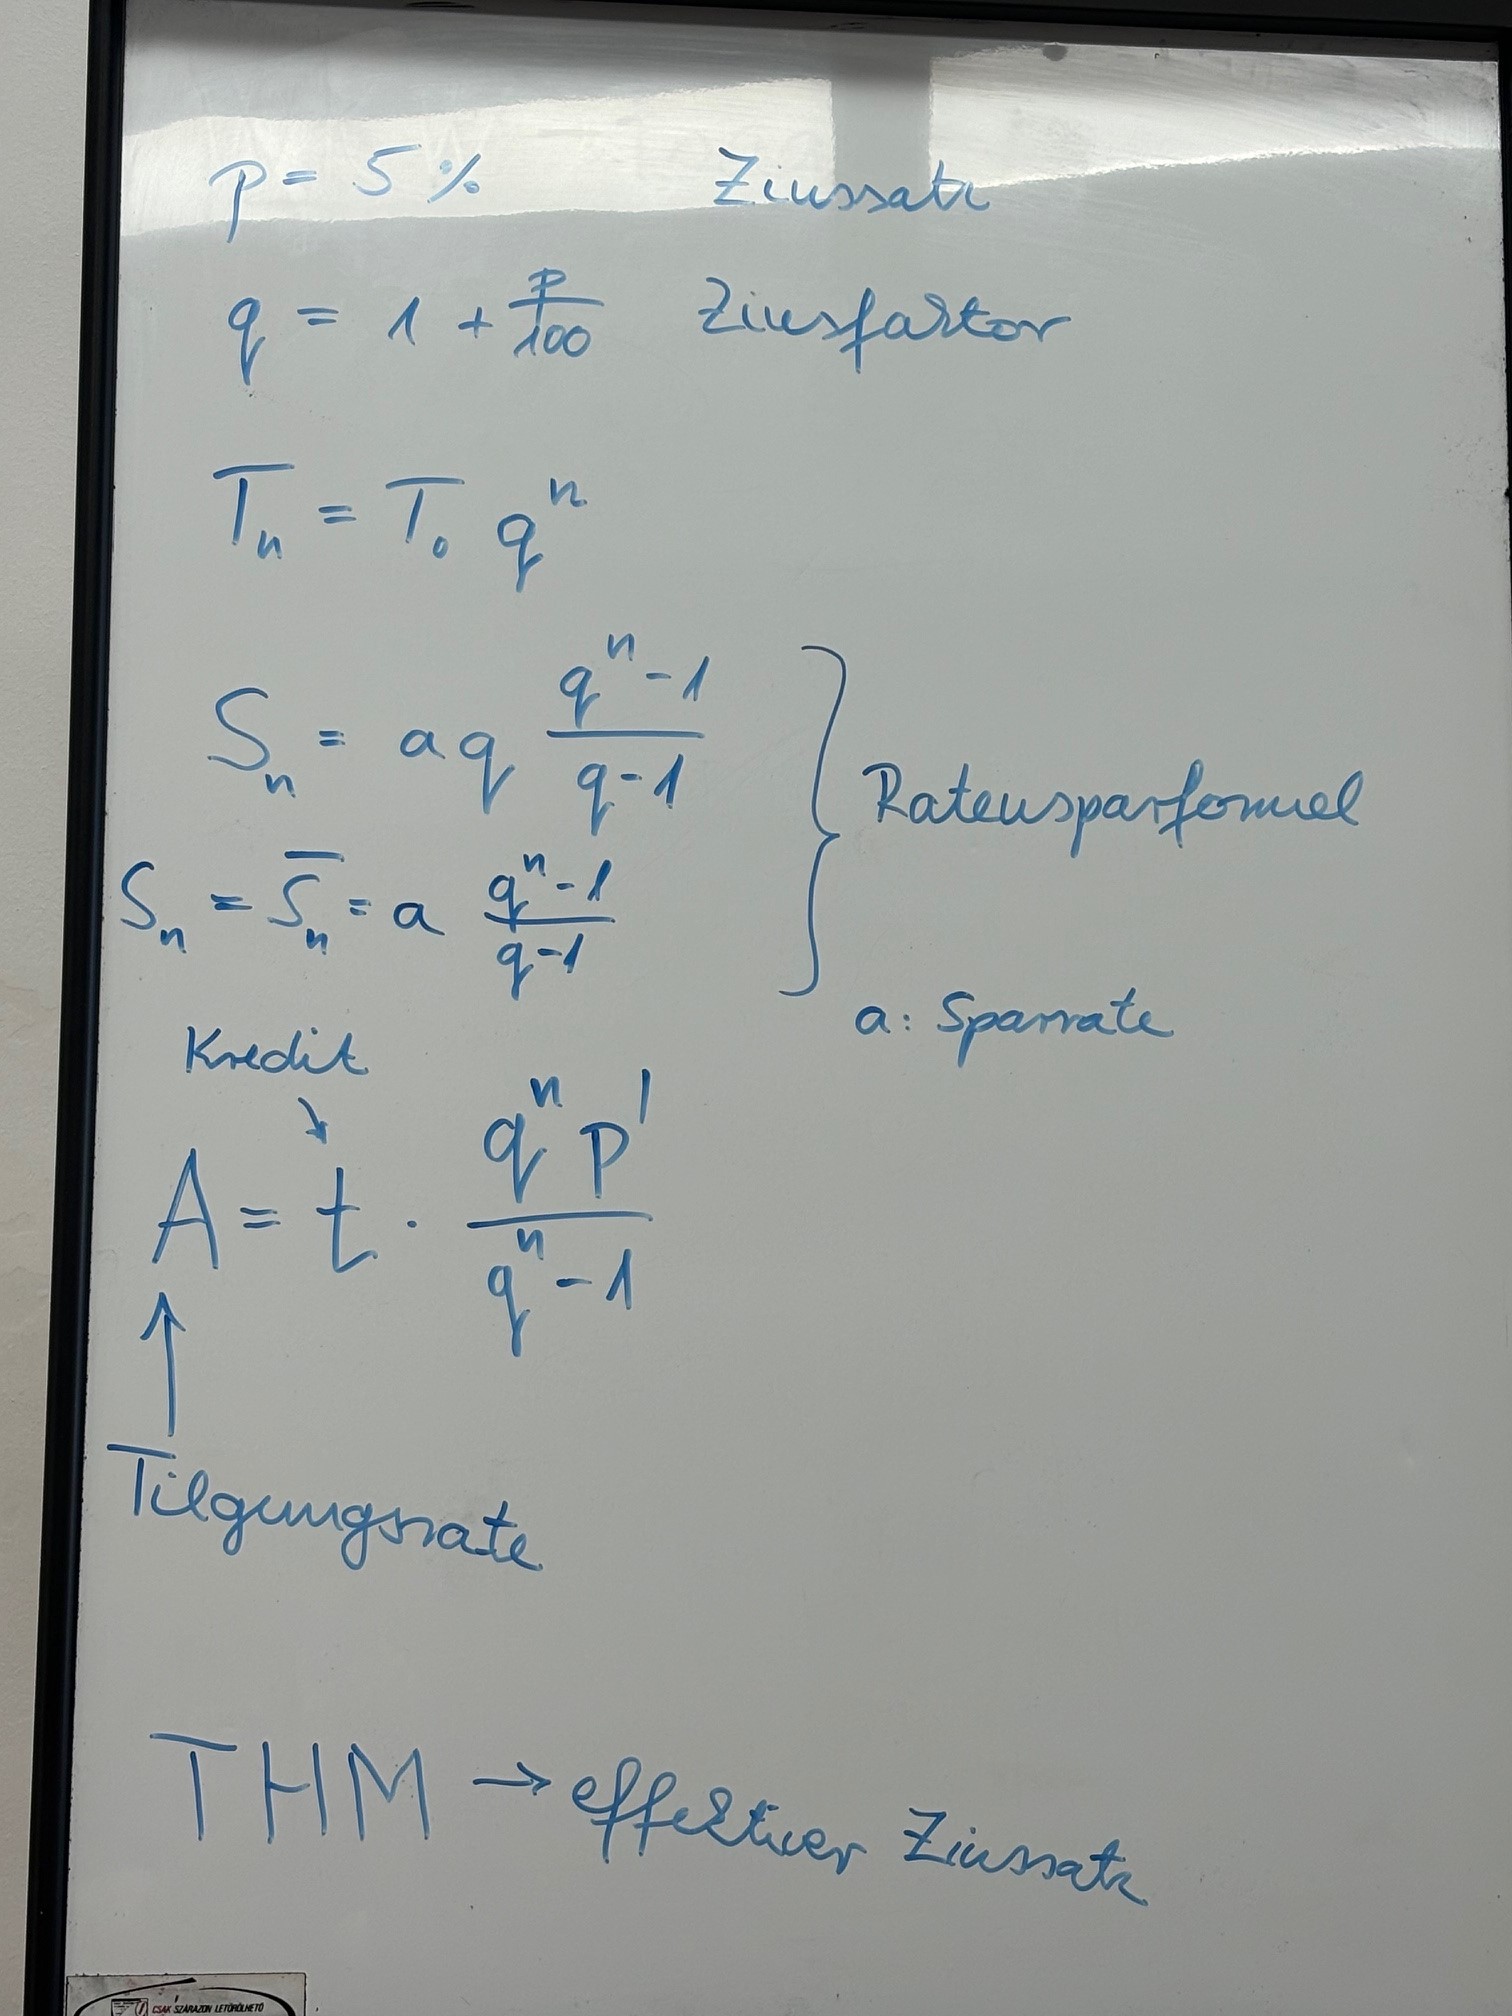 p = 5 % Zinssatz
q = 1 + p/100 Zinsfaktor
Tₙ = T₀ qⁿ
Sₙ = a q (qⁿ - 1)/(q - 1)
Ratensparformel
Sₙ = S̅ₙ = a (qⁿ - 1)/(q - 1)
a: Sparrate
Kredit
A = t · (qⁿ p')/(qⁿ - 1)
Tilgungsrate
THM → effektiver Zinssatz
CSAK SZÁRAZON LETÖRÖLHETŐ